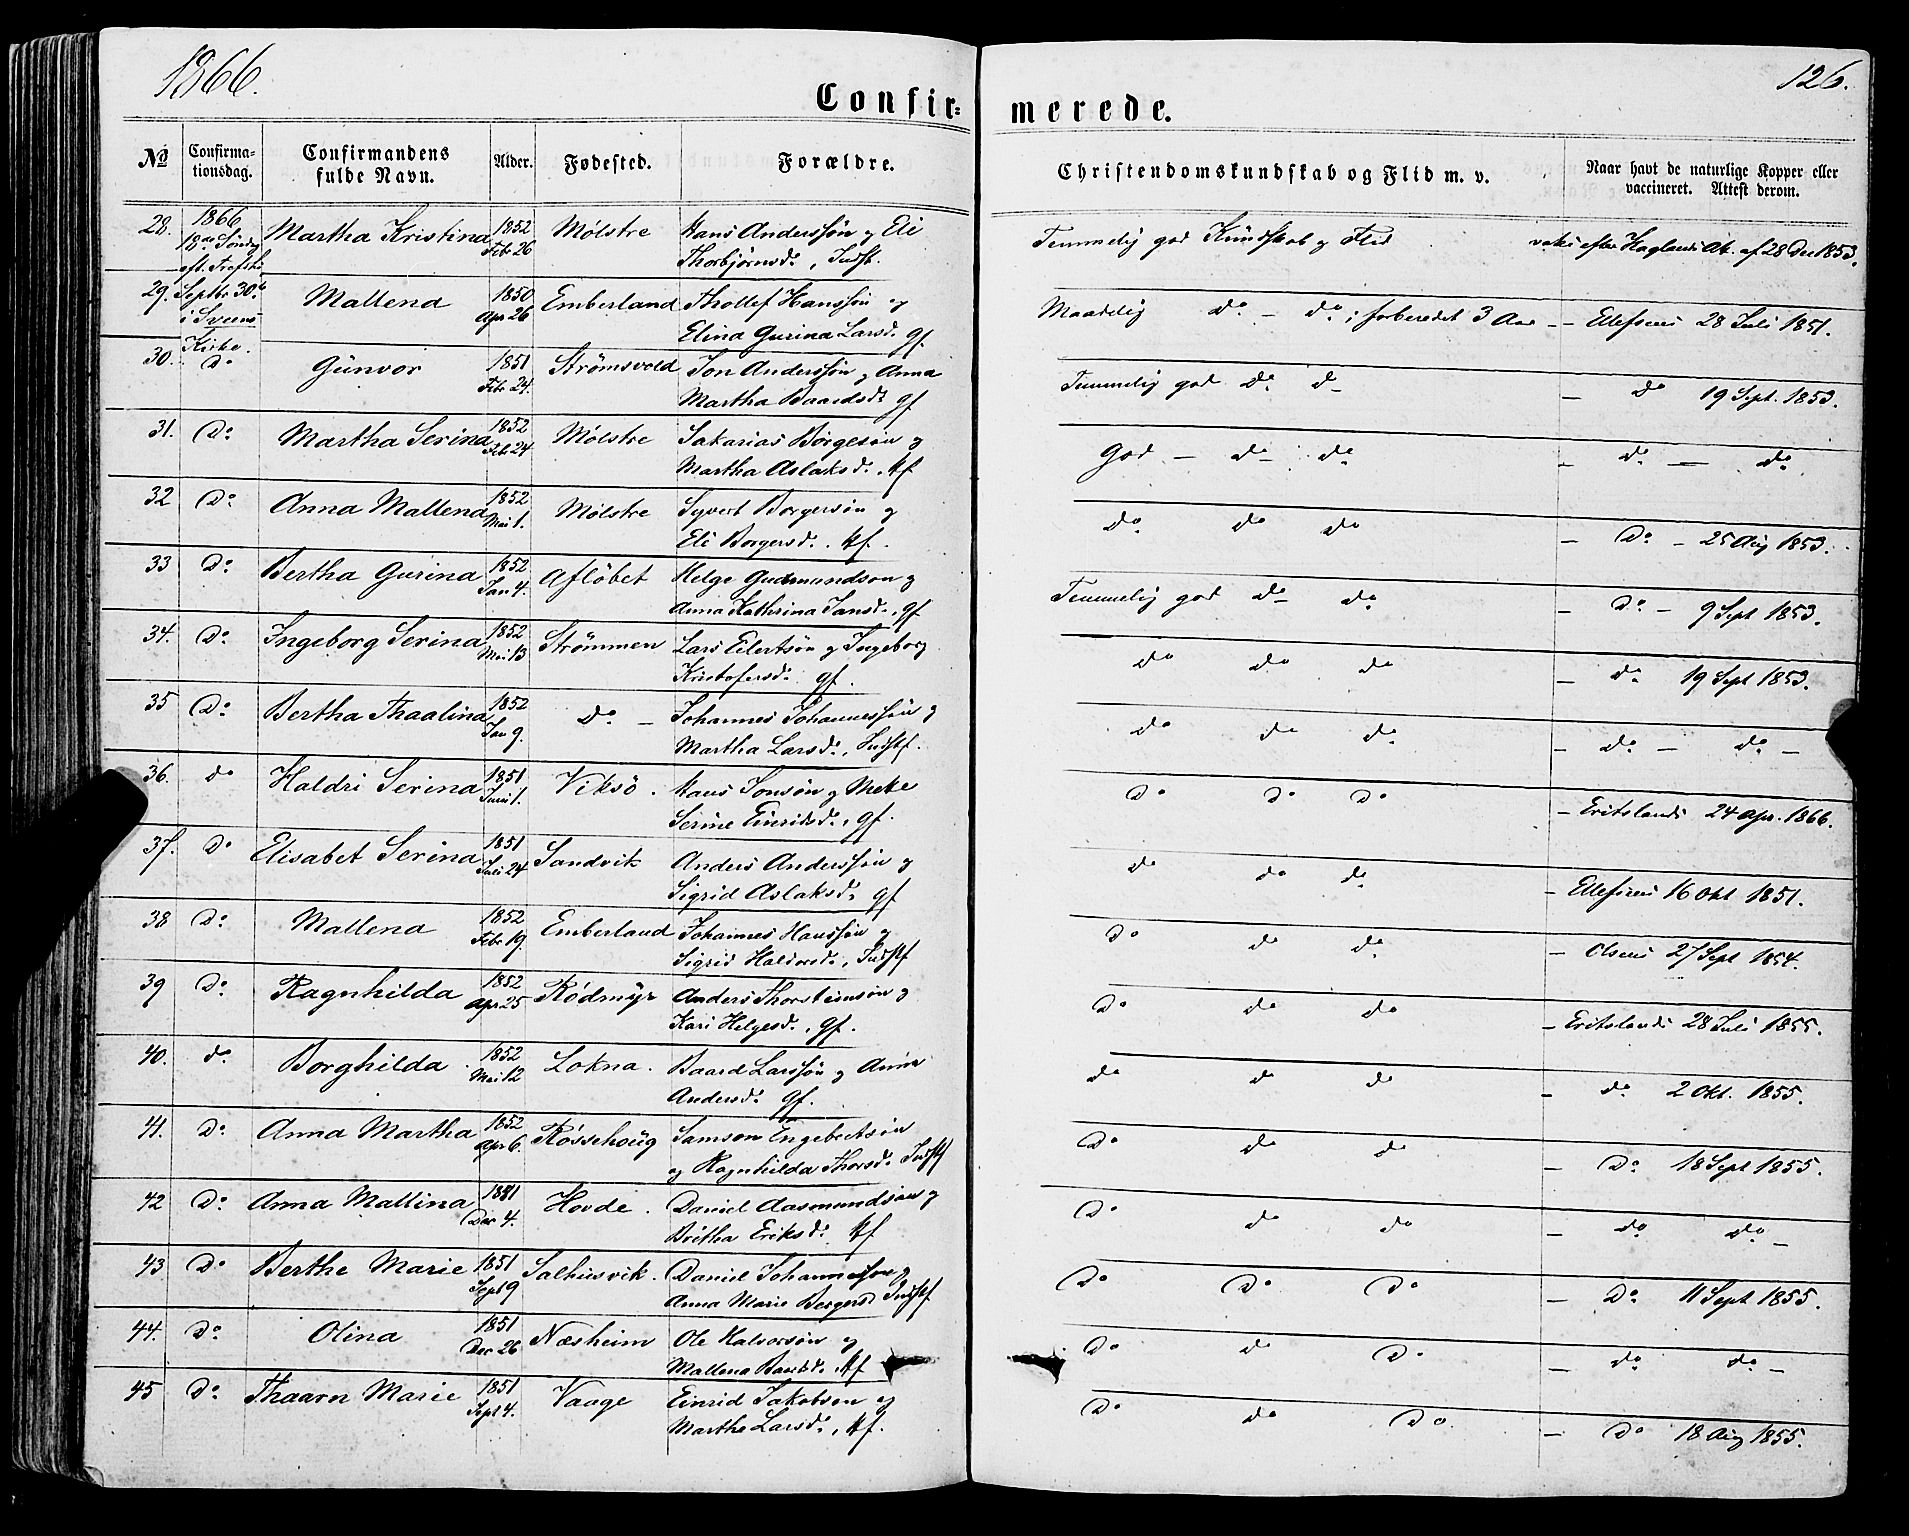 1866.
126.
Confir=
merede.
No
Confirma-
tionsdag.
Confirmandens
fulde Navn.
Alder.
Fødested.
Forældre.
Christendomskundskab og Flid m. v.
Naar havt de naturlige Kopper eller
vaccineret. Attest derom.
28. 1866 Martha Kristina 1852 Mølstre Hans Anderssøn og Eli Temmelig god Kundskab og Flid vaks efter Haglands At. af 28 Dec 1853.
18de Søndag Febr 26 Thorbjørnsdr, Indst.
eft. Trefoldi
29. Septbr 30te Mallena 1850 Emberland Thollef Hanssøn og Maadelig do - do; forberedet 3 Aar - - Ellefsens 28 Juli 1851.
i Sveens Apr 26 Elina Gurina Larsdr gf.
Kirke.
30. Do Gunvor 1851 Strømsvold Jon Anderssøn og Anna Temmelig god do d - do 19 Sept. 1853.
Febr 24. Martha Baardsdr gf
31. Do Martha Serina 1852 Mølstre Sakarias Børgesøn og God - do do - do - do
Febr 24 Martha Aslaksdr. Hf
32 Do Anna Mallena 1852 Mølstre Syvert Borgersøn og do do do - Do - 25 Aug 1853.
Mai 1. Eli Borgersdr. Hf.
33 Do Bertha Gurina 1852 Afløbet Helge Gudmundson og Temmelig god do do - Do - 9 Sept 1853.
Jan 4. Anna Kathrina Jansdr., gf
34. Do Ingeborg Serina 1852 Strømmen Lars Eilertsøn og Ingeborg do do do - do 19 Sept 1853.
Mai 13 Kristofersdr gf.
35 Do Bertha Thaalina 1852 Do - Johannes Johannessøn og do do do - do - do -
Jan 9. Martha Larsdr, Indstf.
36. do Haldri Serina 1851 Viksö. Hans Jonsøn og Meke Do Do Do - Eritslands 24 Apr. 1866.
Juni 1. Serine Einridsdr, gf.
37. Do Elisabet Serina 1851 Sandvik Anders Anderssøn og do do do - Ellefsens 16 Okt 1851.
Juli 24 Sigrid Aslaksdr gf
38 Do Mallena 1852 Emberland Johannes Hanssøn og Do do do - Olsens 27 Sept 1854.
Febr 19. Sigrid Haldorsdr, Indstf
39 Do Ragnhilda 1852 Rödmyr Anders Thorsteinsøn og Do do do - Eritslands 28 Juli 1855.
Apr 25 Kari Helgesdr, gf.
40. do Borghilda 1852 Lokna. Baard Larssøn og Anna do do do - do 2 Okt. 1855.
Mai 12 Andersdr gf.
41. Do Anna Martha 1852 Røssehoug Samson Engebretsøn Do do do - Do 18 Sept 1855.
Apr 6. og Ragnhilda Thorsdr Indstf
42 Do Anna Mallina 1881 Hovde. Daniel Aasmundsøn og Do do do - do do -
Der 4. Britha Eriksdr. Hf
43 Do Berthe Marie 1851 Salhusvik. Daniel Johannessøn og Do Do Do - Do 11 Sept 1855.
Sept 9 Anna Marie Borgersd Indstf
44. Do Olina 1851 Næsheim Ole Halvorsøn og Do do Do - do do -
Der 26 Mallena Baardsdr, Hf
45 Do Thaarn Marie 1851 Vaage Einrid Jakobson og Do do Do - Do 18 Aug 1855.
Sept 4. Marthe Larsdr, Hf.